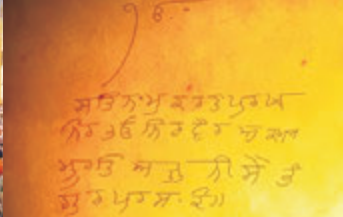 ੴ
ਸਤਿਨਾਮੁ ਕਰਤਾ ਪੁਰਖੁ
ਨਿਰਭਉ ਨਿਰਵੈਰੁ ਅਕਾਲ
ਮੂਰਤਿ ਅਜੂਨੀ ਸੈਭੰ
ਗੁਰ ਪ੍ਰਸਾਦਿ॥